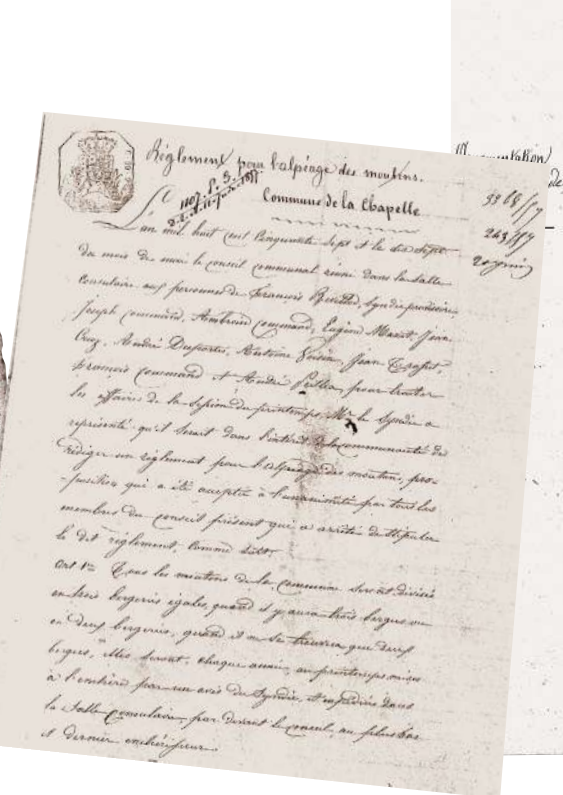 Règlement pour l'alpéage des moutons.
Commune de la Chapelle
L'an mil huit cent cinquante sept et le dix sept
du mois de mai le conseil communal réuni dans la salle
Consulaire aux personnes de François syndic provisoire,
Joseph Command, Ambroise Command, Eugène Jean
André Duportier, Antoine Jean
François Command et André pour traiter
les affaires de la session du printemps, Mr le Syndic a
représenté qu'il serait dans l'intérêt de la communauté de
rédiger un règlement pour l'alpéage des moutons, pro-
-position qui a été acceptée à l'unanimité par tous les
membres du conseil présent qui a arrêté de stipuler
le dit règlement, comme suit.
Art 1er Tous les moutons de la commune seront divisés
en trois bergeries égales, quand il y aura trois bergers ou
en deux bergeries, quand il ne se trouvera que deux
bergers, elles seront, chaque année, au printemps mises
à l'enchère par un avis du Syndic, et expédiées dans
la salle consulaire, par devant le conseil, au plus bas
et dernier enchérisseur
3368/
243/
20 juin